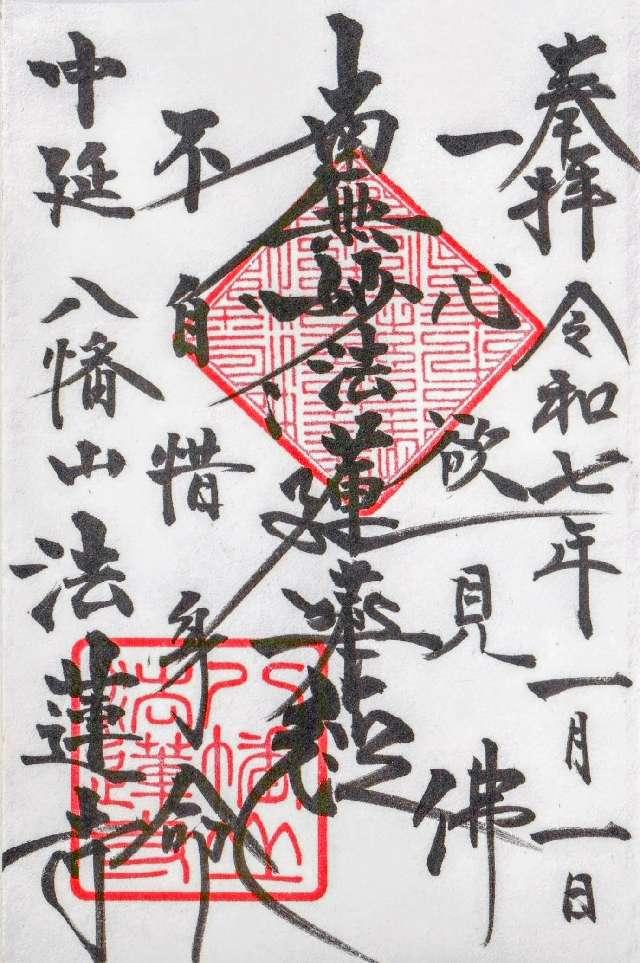 奉拝 令和七年一月一日
一心欲見佛
南無妙法蓮華経
不自惜身命
中延 八幡山 法蓮寺